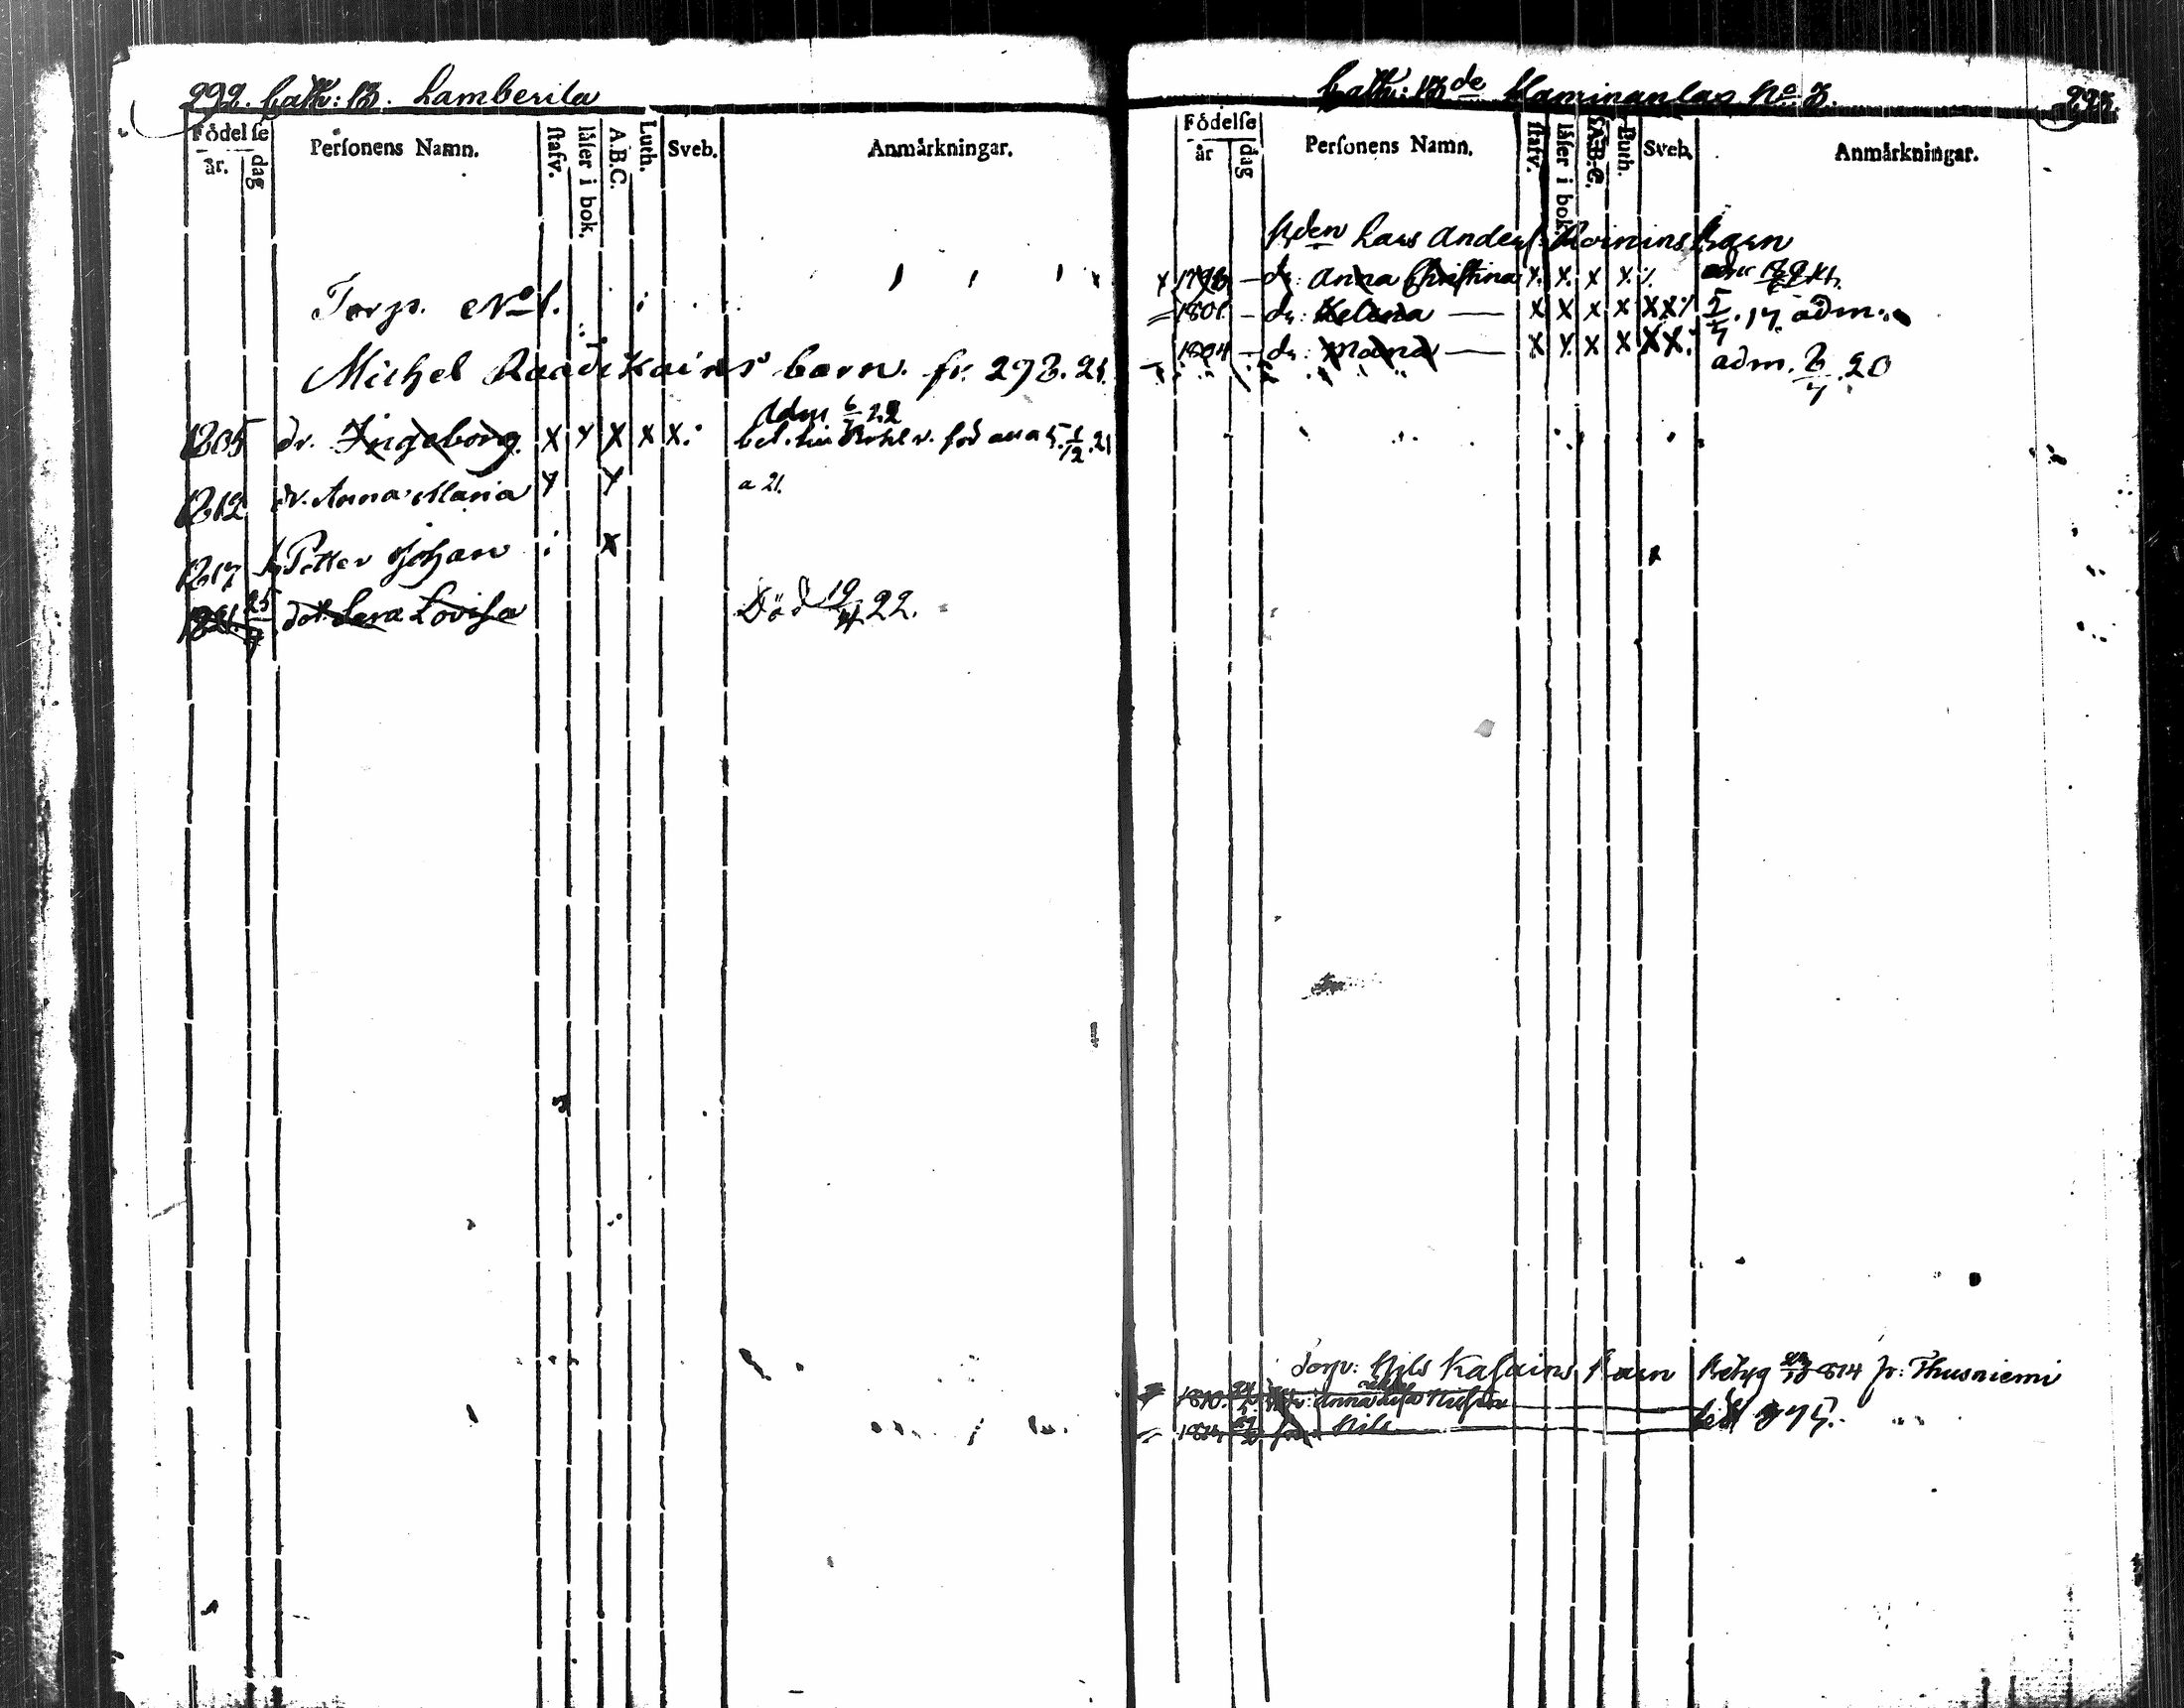 292. Cath: 13. Lamberila
Födelse
år. dag
Personens Namn.
stafv.
läser i bok.
A.B.C.
Luth.
Sveb.
Anmärkningar.
Torp. No 1.
Michel Raadikains barn. fr. 293. 21.
Adm 6/7 22
1805 dr. Ingeborg. X Y X X X.
1812 dr. Anna Maria Y Y a 21.
1817 Petter Johan X
1821. 25/7 dot. Sara Lovisa Död 19/4 22.
Cath: 13de Haminanlax No 3. 293.
Födelse
år dag
Personens Namn.
stafv.
läser i bok.
A.B.C.
Luth.
Sveb.
Anmärkningar.
Lars Anders barn
X 1798 — dr: Anna Christina X. X. X X.
1801. — dr: Helena — X X X X XX 5/7. 17 adm.
1804 — dr: Maria — X X. X X XX. adm. 2/7. 20
Torp: Nils Kasains barn Betyg 814 fr: Thusniemi
1810. Anna
Nils